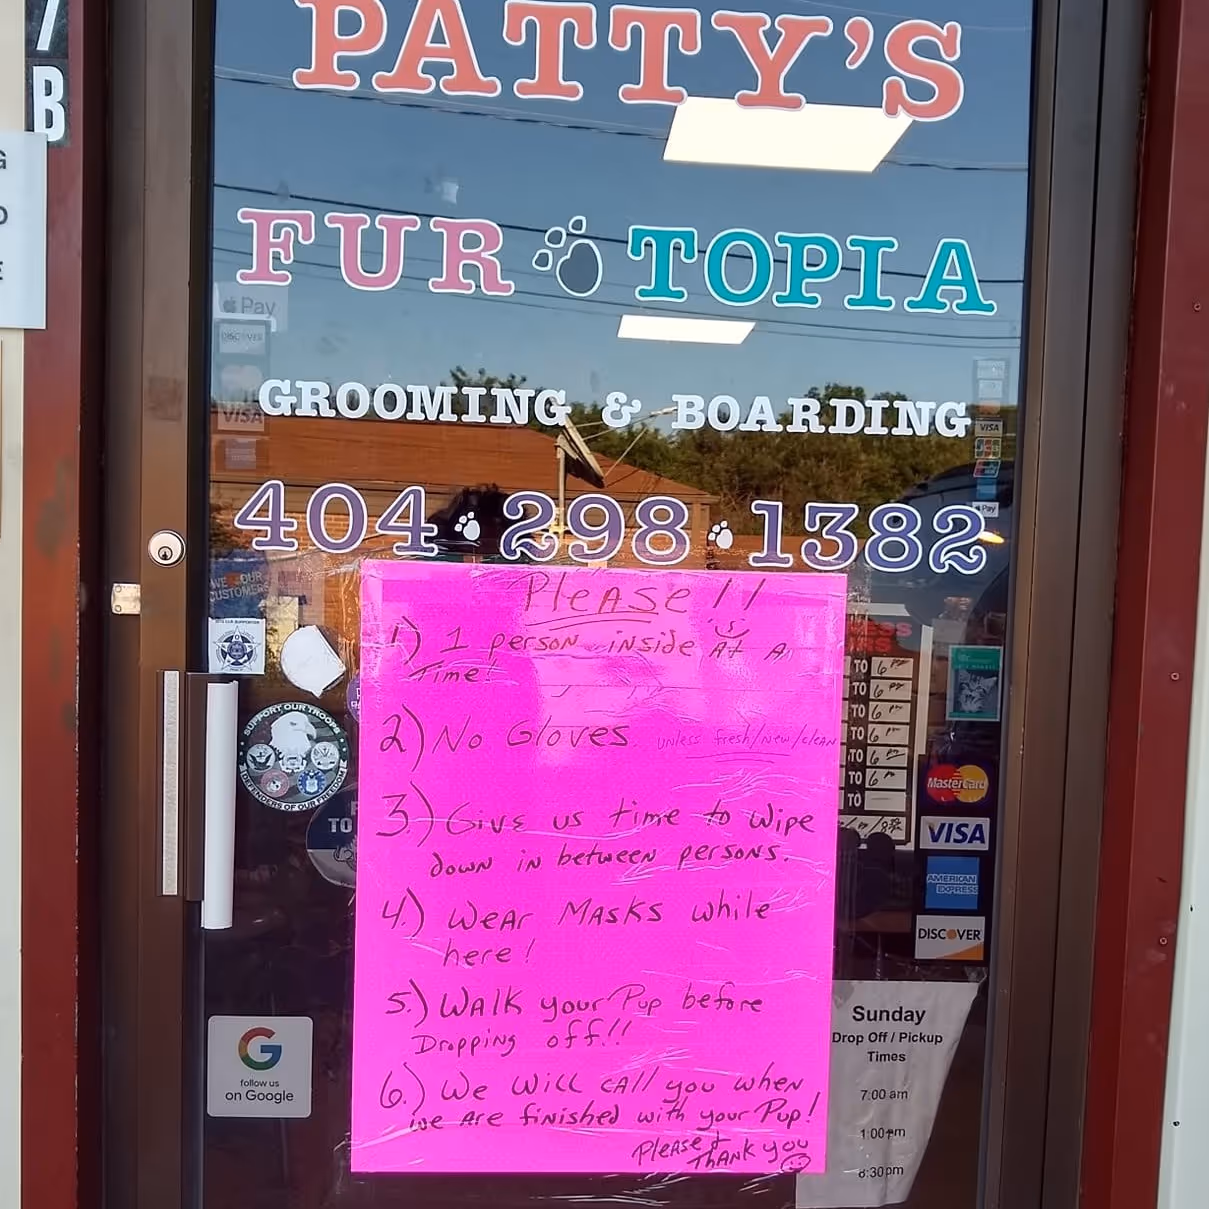 7
B
PATTY'S
FUR TOPIA
Pay
DISCOVER
VISA
GROOMING & BOARDING
VISA
Pay
404 298 1382
WE OUR
CUSTOMERS
Please!!
1.) 1 person inside At A
Time!
2.) No Gloves. unless fresh/new/clean
3.) Give us time to wipe
down in between persons.
4.) Wear MASKS while
here!
5.) WALK your Pup before
Dropping off!!
6.) We will call you when
we are finished with your Pup!
Please &
THANK you
SUPPORT OUR TROOPS
DEFENDERS OF OUR FREEDOM
TO
TO 6 PM
TO 6 PM
TO 6 PM
TO 6 PM
TO 6 PM
TO 6 PM
TO
MasterCard
VISA
AMERICAN
EXPRESS
DISCOVER
G
follow us
on Google
Sunday
Drop Off / Pickup
Times
7:00 am
1:00 pm
6:30pm